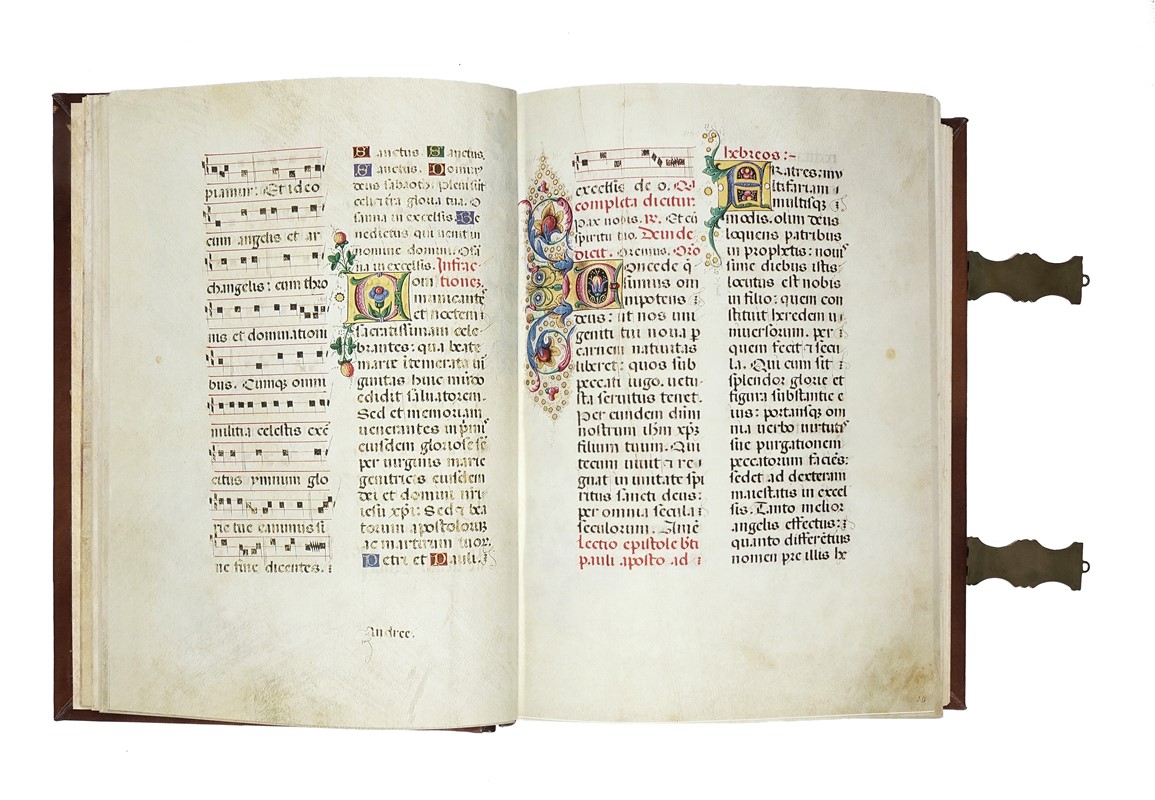 piamur. Et ideo
cum angelis et ar
changelis: cum thro
nis et dominationi
bus. Cumq̃ omni
militia celestis exẽ
citus ymnum glo
rie tue canimus si
ne fine dicentes.
Sanctus. Sanctus.
Sanctus. Domin9
deus sabaoth. Pleni sũt
celi et terra gloria tua. O
sanna in excelsis. Be
nedictus qui uenit in
nomine domini. Osã
na in excelsis. Infrac
Com tiones.
municantes
et noctem
sacratissimam cele
brantes: qua beate
marie ĩtemerata uir
ginitas huic mũdo
edidit saluatorem.
Sed et memoriam
uenerantes inpmis
eiusdem gloriose sẽ
per uirginis marie
genitricis eiusdem
dei et domini nri
iesu xpi: Sed et bea
torum apostolorum
ac martirum tuor.
Petri et Pauli.
Andree.
excelsis de o. Qa
completa dicitur.
Pax nobis. R. Et cũ
spiritu tuo. Deinde
dicit. Oremus. Oro
Concede q̃
sumus om
nipotens
deus: ut nos uni
geniti tui noua p
carnem natiuitas
liberet: quos sub
peccati iugo. uetu
sta seruitus tenet.
Per eundem dũm
nostrum ihm xpm
filium tuum. Qui
tecum uiuit et re
gnat in unitate spi
ritus sancti deus:
per omnia secula
seculorum. Amẽ
Lectio epistole bti
pauli aposto. ad
hebreos:-
Fratres: mu
ltifariam
multisq;
modis. olim deus
loquens patribus
in prophetis: nouis
sime diebus istis
locutus est nobis
in filio: quem con
stituit heredem u
niuersorum. per
quem fecit et secu
la. Qui cum sit
splendor glorie et
figura substantie e
ius: portansq; om
nia uerbo uirtutis
sue purgationem
peccatorum faciẽs:
sedet ad dexteram
maiestatis in excel
sis. Tanto melior
angelis effectus:
quanto differẽtius
nomen pre illis he